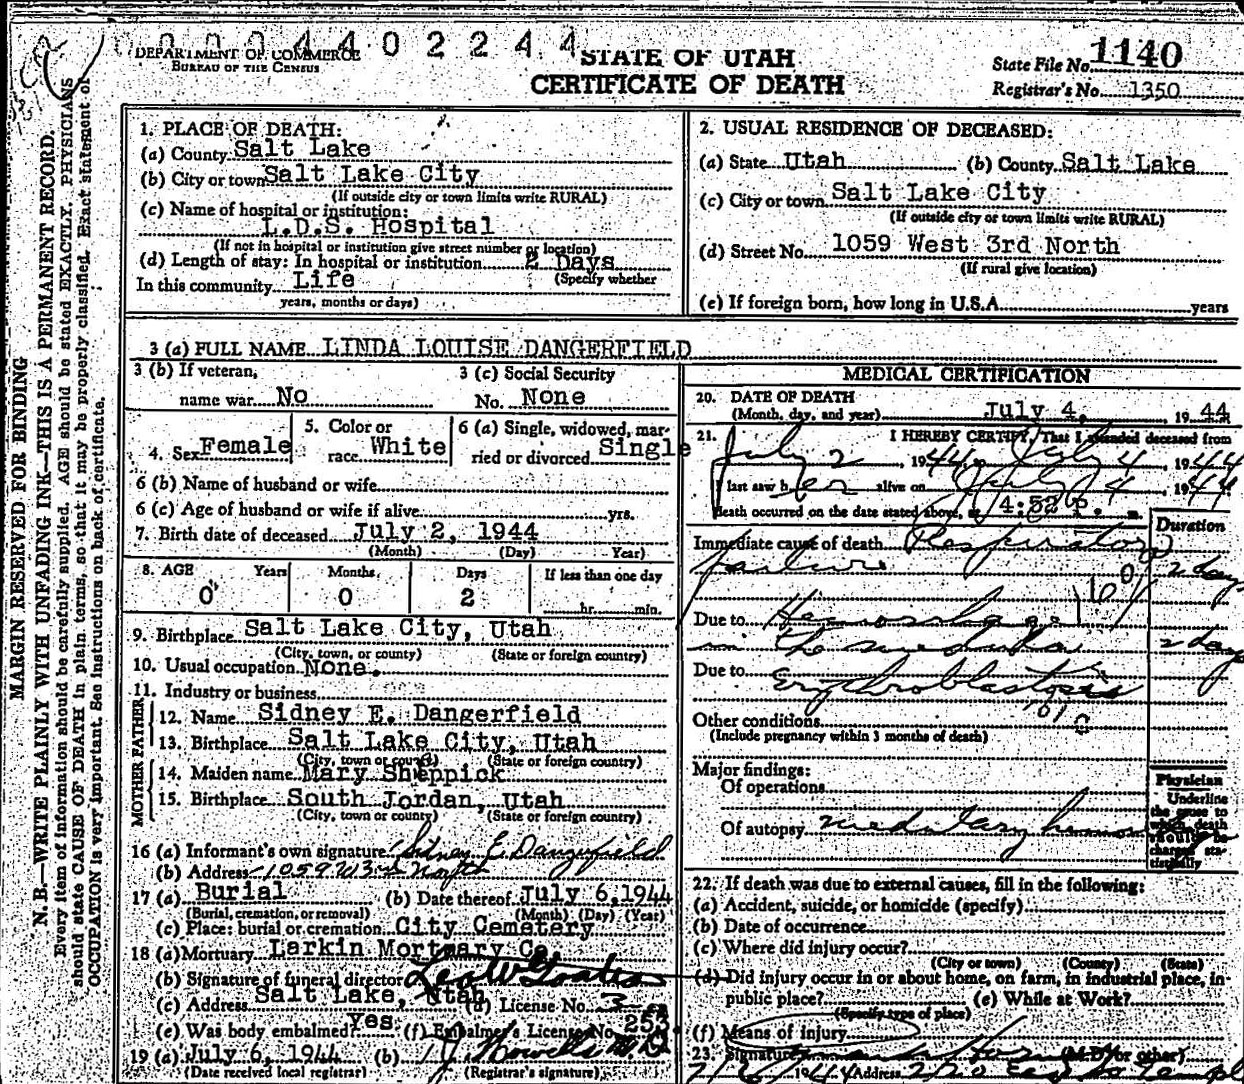 0 0 0 4 4 0 2 2 4 4
DEPARTMENT OF COMMERCE
BUREAU OF THE CENSUS
STATE OF UTAH
CERTIFICATE OF DEATH
State File No. 1140
Registrar's No. 1350
MARGIN RESERVED FOR BINDING
N. B.—WRITE PLAINLY WITH UNFADING INK—THIS IS A PERMANENT RECORD.
Every item of information should be carefully supplied. AGE should be stated EXACTLY. PHYSICIANS
should state CAUSE OF DEATH in plain terms, so that it may be properly classified. Exact statement of
OCCUPATION is very important. See instructions on back of certificate.
1. PLACE OF DEATH:
(a) County Salt Lake
(b) City or town Salt Lake City
(If outside city or town limits write RURAL)
(c) Name of hospital or institution:
L.D.S. Hospital
(If not in hospital or institution give street number or location)
(d) Length of stay: In hospital or institution 2 Days
(Specify whether
In this community Life
years, months or days)
2. USUAL RESIDENCE OF DECEASED:
(a) State Utah (b) County Salt Lake
(c) City or town Salt Lake City
(If outside city or town limits write RURAL)
(d) Street No. 1059 West 3rd North
(If rural give location)
(e) If foreign born, how long in U.S.A. years
3 (a) FULL NAME LINDA LOUISE DANGERFIELD
3 (b) If veteran, 3 (c) Social Security
name war No No. None
4. Sex Female 5. Color or race White 6 (a) Single, widowed, married or divorced Single
6 (b) Name of husband or wife
6 (c) Age of husband or wife if alive yrs.
7. Birth date of deceased July 2, 1944
(Month) (Day) Year)
8. AGE Years Months Days If less than one day
0 0 2 hr. min.
9. Birthplace Salt Lake City, Utah
(City, town, or county) (State or foreign country)
10. Usual occupation None.
11. Industry or business
FATHER
12. Name Sidney E. Dangerfield
13. Birthplace Salt Lake City, Utah
(City, town or county) (State or foreign country)
MOTHER
14. Maiden name Mary Sheppick
15. Birthplace South Jordan, Utah
(City, town or county) (State or foreign country)
16 (a) Informant's own signature Sidney E. Dangerfield
(b) Address 1059 W 3rd North
17 (a) Burial (b) Date thereof July 6, 1944
(Burial, cremation, or removal) (Month) (Day) (Year)
(c) Place: burial or cremation City Cemetery
18 (a) Mortuary Larkin Mortuary Co
(b) Signature of funeral director
(c) Address Salt Lake, Utah (d) License No. 3
(e) Was body embalmed? yes (f) Embalmer's License No.
19 (a) July 6, 1944 (b)
(Date received local registrar) (Registrar's signature)
MEDICAL CERTIFICATION
20. DATE OF DEATH
(Month, day, and year) July 4, 1944
21. I HEREBY CERTIFY, That I attended deceased from
July 2, 1944 July 4, 1944
I last saw her alive on July 4, 1944
death occurred on the date stated above, at 4:52 P. m.
Duration
Immediate cause of death Respiratory
failure 2 days
Due to Hemorrhage
in the medulla 2 days
Due to Erythroblastosis
161c
Other conditions
(Include pregnancy within 3 months of death)
Major findings:
Of operations
Of autopsy
Physician
Underline
the cause to
which death
should be
charged sta-
tistically
22. If death was due to external causes, fill in the following:
(a) Accident, suicide, or homicide (specify)
(b) Date of occurrence
(c) Where did injury occur?
(City or town) (County) (State)
(d) Did injury occur in or about home, on farm, in industrial place, in
public place? (e) While at Work?
(Specify type of place)
(f) Means of injury
23. Signature (M.D. or other)
7/6/1944 Address